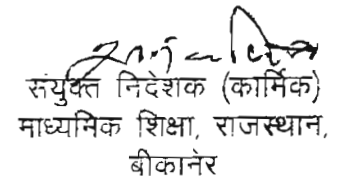 संयुक्त निदेशक (कार्मिक)
माध्यमिक शिक्षा, राजस्थान,
बीकानेर